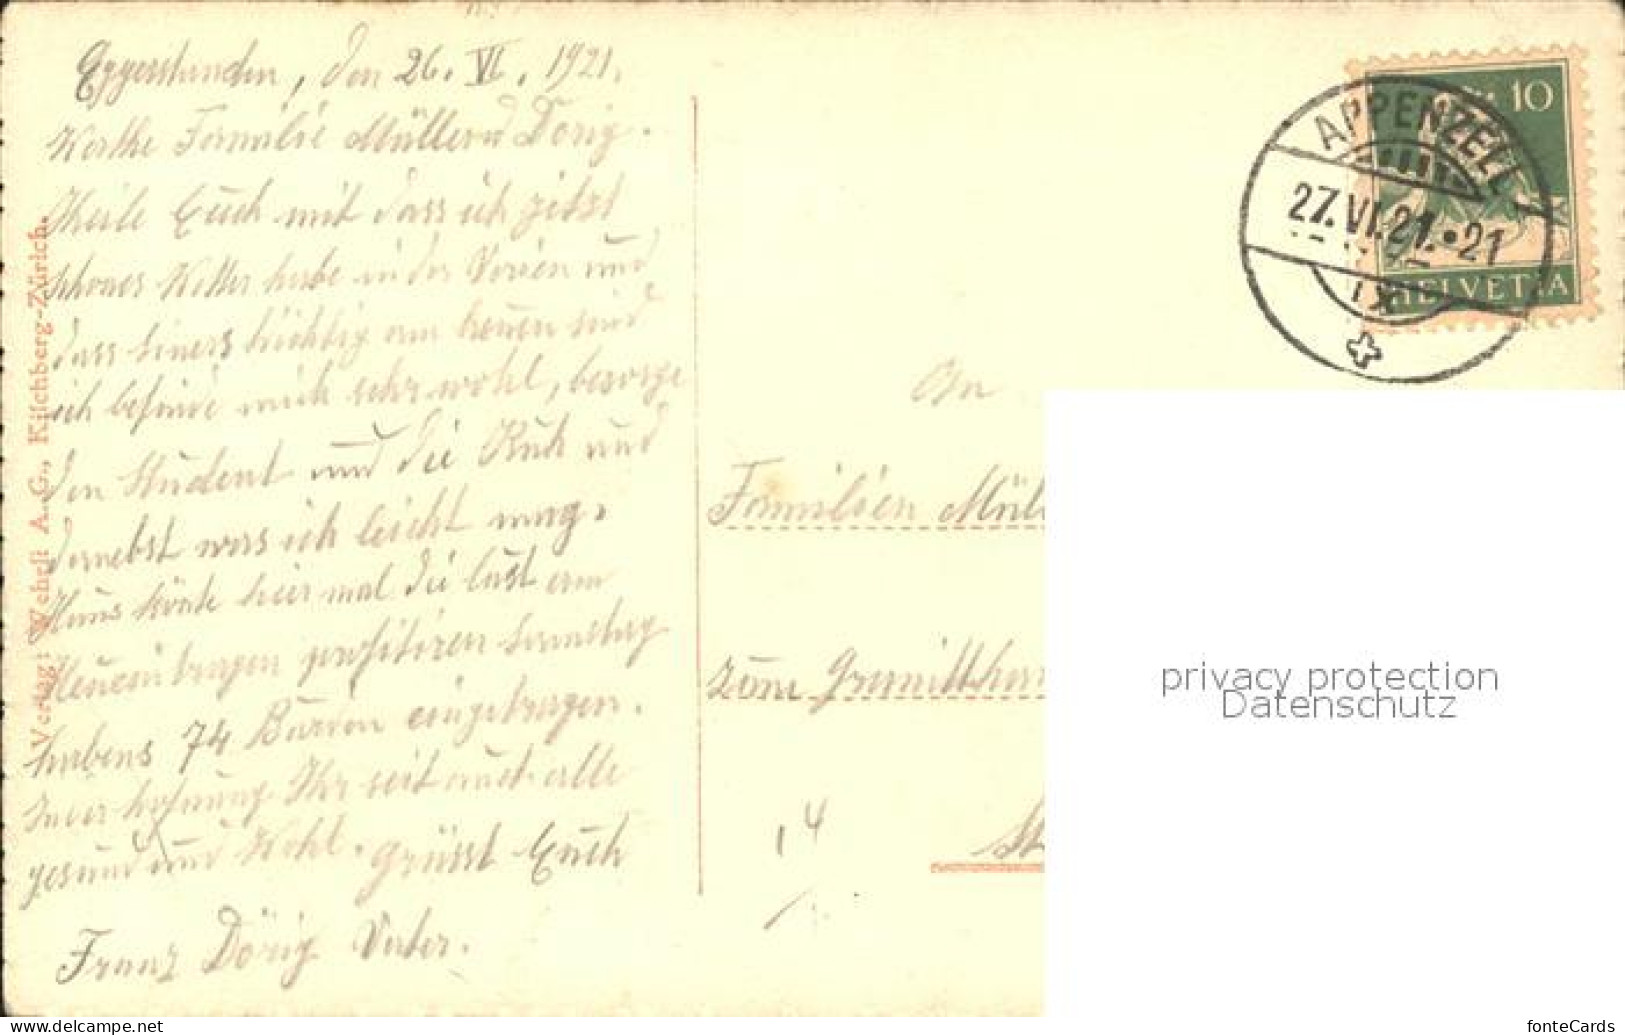 Eggerstanden, den 26. VI. 1921.
Werthe Familie Müller u Dörig.
Theile Euch mit dass ich jetzt
schönes Wetter habe in der Ferien und
dass tüchtig am heuen sind
ich befinde mich sehr wohl, besorge
den Student und die Kuh und
darnebst was ich leicht mag.
Hans könte hier mal die lust am
Heueintragen profitiren Samstag
habens 74 Burden eingetragen.
In der hofnung Ihr seit auch alle
gesund und Wohl. grüsst Euch
Franz Dörig Vater.
Verlag: Wehrli A.G., Kilchberg-Zürich.
10
HELVETIA
APPENZELL
27.VI.21.•21
IX
An
Familien Mül
zum Granitthor
St
14
privacy protection
Datenschutz
www.delcampe.net
fonteCards